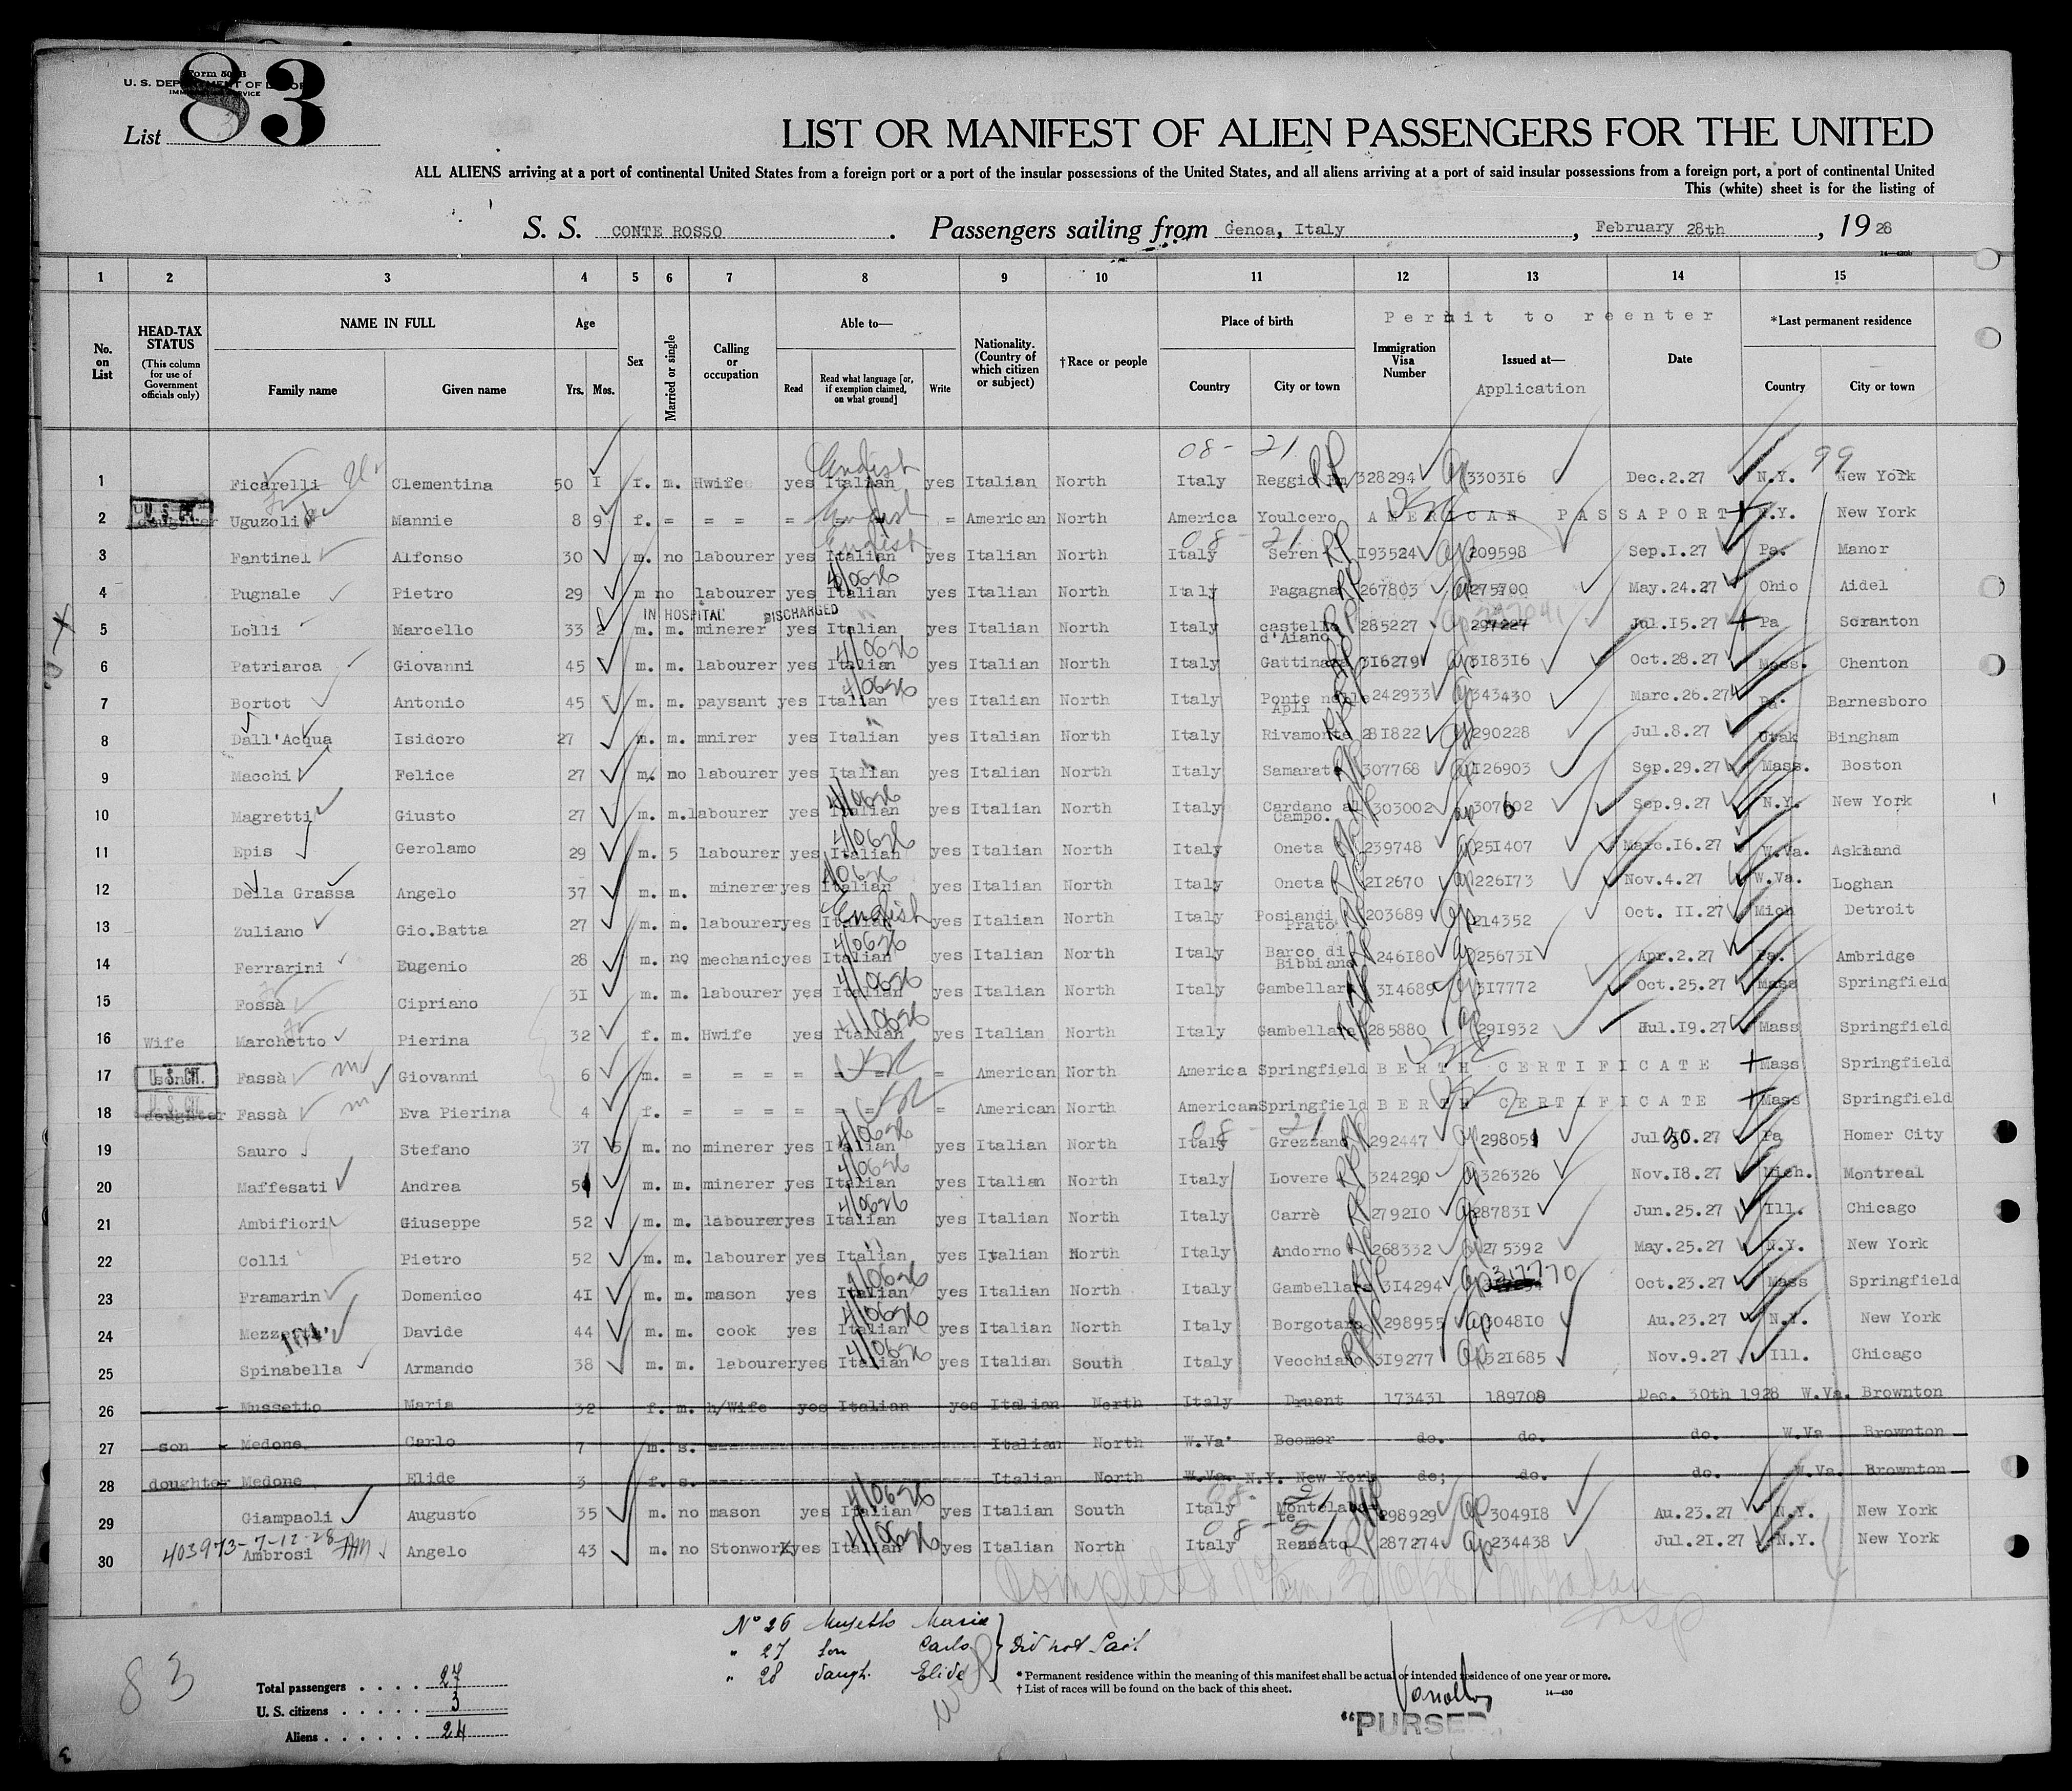 83
Form 500 B
U. S. DEPARTMENT OF LABOR
IMMIGRATION SERVICE
List
LIST OR MANIFEST OF ALIEN PASSENGERS FOR THE UNITED
ALL ALIENS arriving at a port of continental United States from a foreign port or a port of the insular possessions of the United States, and all aliens arriving at a port of said insular possessions from a foreign port, a port of continental United
This (white) sheet is for the listing of
S. S. CONTE ROSSO. Passengers sailing from Genoa, Italy, February 28th, 19 28
1 2 3 4 5 6 7 8 9 10 11 12 13 14 15
No. on List
HEAD-TAX STATUS (This column for use of Government officials only)
NAME IN FULL Family name Given name
Age Yrs. Mos.
Sex
Married or single
Calling or occupation
Able to— Read Read what language [or, if exemption claimed, on what ground] Write
Nationality. (Country of which citizen or subject)
†Race or people
Place of birth Country City or town
Permit to reenter
Immigration Visa Number
Issued at— Application
Date
*Last permanent residence Country City or town
08 - 21 99
1 Ficarelli Clementina 50 I f. m. Hwife yes Italian English yes Italian North Italy Reggio RP 328294 ap 330316 Dec.2.27 N.Y. New York
2 U.S. CIT. daughter Uguzoli Mannie 8 9 f. = = = = English = American North America Youlcero AMERICAN PASSAPORT N.Y. New York
08 - 21
3 Fantinel Alfonso 30 m. no labourer yes Italian English yes Italian North Italy Seren RP 193524 ap 209598 Sep.I.27 Pa. Manor
4 Pugnale Pietro 29 m no labourer yes Italian yes Italian North Italy Fagagna RP 267803 ap 275700 May.24.27 Ohio Aidel
IN HOSPITAL DISCHARGED
5 Lolli Marcello 33 2 m. m. minerer yes Italian yes Italian North Italy castello d'Aiano RP 285227 ap 297227 Jul.15.27 Pa Scranton
6 Patriarca Giovanni 45 m. m. labourer yes Italian yes Italian North Italy Gattinara 316279 ap 318316 Oct.28.27 Mass. Chenton
7 Bortot Antonio 45 m. m. paysant yes Italian yes Italian North Italy Ponte nelle Apli 242933 ap 343430 Marc.26.27 Pa. Barnesboro
8 Dall'Acqua Isidoro 27 m. m. mnirer yes Italian yes Italian North Italy Rivamonte 281822 ap 290228 Jul.8.27 Utak Bingham
9 Macchi Felice 27 m. no labourer yes Italian yes Italian North Italy Samarate 307768 ap 126903 Sep.29.27 Mass. Boston
10 Magretti Giusto 27 m. m. labourer yes Italian yes Italian North Italy Cardano al Campo. 303002 ap 307602 Sep.9.27 N.Y. New York
11 Epis Gerolamo 29 m. 5 labourer yes Italian yes Italian North Italy Oneta 239748 ap 251407 Marc.16.27 W.Va. Askland
12 Della Grassa Angelo 37 m. m. minerer yes Italian yes Italian North Italy Oneta 212670 ap 226173 Nov.4.27 W.Va. Loghan
13 Zuliano Gio.Batta 27 m. m. labourer yes Italian English yes Italian North Italy Posiandi Prato 203689 ap 214352 Oct. II.27 Mich Detroit
14 Ferrarini Eugenio 28 m. no mechanic yes Italian yes Italian North Italy Barco di Bibbiano 246180 ap 256731 Apr.2.27 Pa. Ambridge
15 Fossà Cipriano 31 m. m. labourer yes Italian yes Italian North Italy Gambellara 314689 ap 317772 Oct.25.27 Mass Springfield
16 Wife Marchetto Pierina 32 f. m. Hwife yes Italian yes Italian North Italy Gambellara 285880 ap 291932 Jul.19.27 Mass Springfield
17 U.S. CIT. son Fassà Giovanni 6 m. = = = = = = American North America Springfield BERTH CERTIFICATE Mass Springfield
18 U.S. CIT. daughter Fassà Eva Pierina 4 f. = = = = = = American North American Springfield BERTH CERTIFICATE Mass Springfield
08 - 21
19 Sauro Stefano 37 5 m. no minerer yes Italian yes Italian North Italy Grezzano RP 292447 ap 298059 Jul.30.27 Pa Homer City
20 Maffesati Andrea 54 m. m. minerer yes Italian yes Italian North Italy Lovere RP 324290 ap 326326 Nov.18.27 Mich. Montreal
21 Ambifiori Giuseppe 52 m. m. labourer yes Italian yes Italian North Italy Carrè 279210 ap 287831 Jun.25.27 Ill. Chicago
22 Colli Pietro 52 m. m. labourer yes Italian yes Italian North Italy Andorno 268332 ap 275392 May.25.27 N.Y. New York
23 Framarin Domenico 41 m. m. mason yes Italian yes Italian North Italy Gambellara 314294 ap 317770 Oct.23.27 Mass Springfield
24 Davide 44 m. m. cook yes Italian yes Italian North Italy Borgotaro 298955 ap 304810 Au.23.27 N.Y. New York
25 Spinabella Armando 38 m. m. labourer yes Italian yes Italian South Italy Vecchiano 319277 ap 321685 Nov.9.27 Ill. Chicago
26 Mussetto Maria 32 f. m. h/Wife yes Italian yes Italian North Italy Druent 173431 189708 Dec. 30th 1928 W.Va. Brownton
27 son Medone Carlo 7 m. s. Italian North W.Va. Boomer do. do. do. W.Va Brownton
28 doughter Medone Elide 3 f. s. Italian North W.Va. N.Y. New York do; do. do. W.Va. Brownton
08 - 21
29 Giampaoli Augusto 35 m. no mason yes Italian yes Italian South Italy 298929 ap 304918 Au.23.27 N.Y. New York
08 - 21
30 403973 - 7-12-28 Ambrosi Angelo 43 m. no Stonwork yes Italian yes Italian North Italy Rezzato 287274 ap 234438 Jul.21.27 N.Y. New York
Completed
No 26 Musetto Maria
" 27 Son Carlo
" 28 daugh. Elide
Did not Sail
83
Total passengers . . . . 27
U. S. citizens . . . . . 3
Aliens . . . . . . 24
* Permanent residence within the meaning of this manifest shall be actual or intended residence of one year or more.
† List of races will be found on the back of this sheet.
14—430
"PURSER